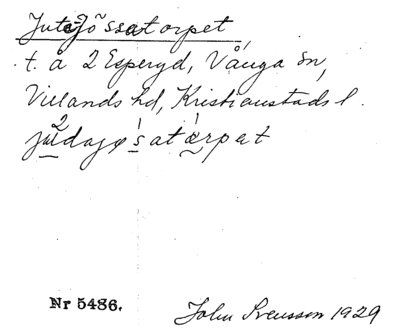 Jutagössatorpet
t. å 2 Esperyd, Vånga sn,
Villands hd, Kristianstads l.
judagøsatərpet
Nr 5486.
John Svensson 1929